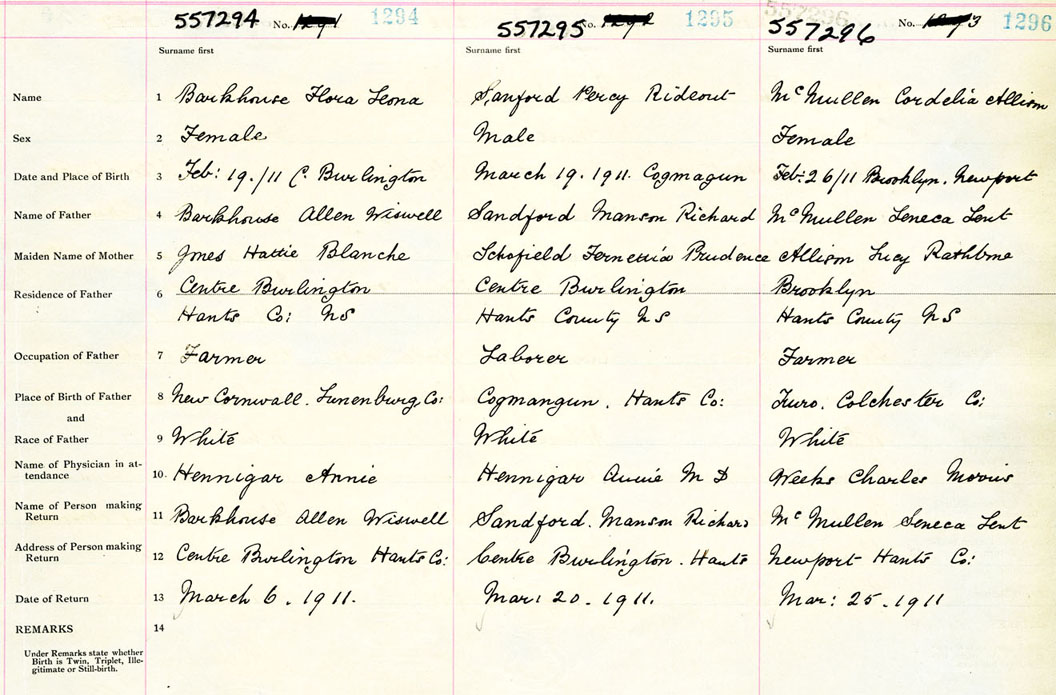 557294 No. 1291 1294 557295 No. 1292 1295 557296 No. 1293 1296
Surname first Surname first Surname first
Name 1 Barkhouse Flora Leona Sanford Percy Rideout McMullen Cordelia Allison
Sex 2 Female Male Female
Date and Place of Birth 3 Feb: 19./11 C. Burlington March 19. 1911. Cogmagun Feb: 26/11 Brooklyn. Newport
Name of Father 4 Barkhouse Allen Wiswell Sandford Manson Richard McMullen Seneca Lent
Maiden Name of Mother 5 Jones Hattie Blanche Schofield Prudence Allison Lucy Rathbone
Residence of Father 6 Centre Burlington Centre Burlington Brooklyn
Hants Co: NS Hants County NS Hants County NS
Occupation of Father 7 Farmer Laborer Farmer
Place of Birth of Father 8 New Cornwall. Lunenburg Co: Cogmangun. Hants Co: Truro. Colchester Co:
and
Race of Father 9 White White White
Name of Physician in at-
tendance 10. Hennigar Annie Hennigar Annie M D Weeks Charles Morris
Name of Person making
Return 11 Barkhouse Allen Wiswell Sandford. Manson Richard McMullen Seneca Lent
Address of Person making
Return 12 Centre Burlington Hants Co: Centre Burlington. Hants Newport Hants Co:
Date of Return 13 March 6. 1911. Mar: 20. 1911. Mar: 25. 1911
REMARKS 14
Under Remarks state whether
Birth is Twin, Triplet, Ille-
gitimate or Still-birth.